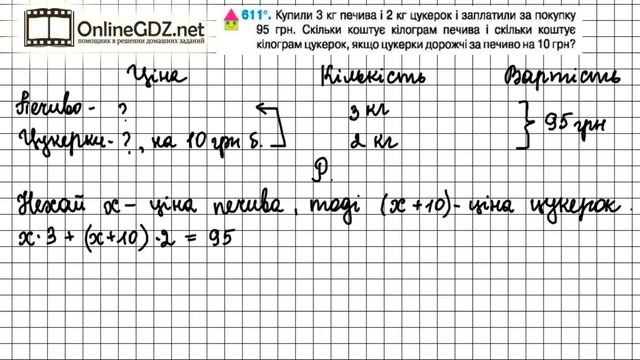 OnlineGDZ.net
помощник в решении домашних заданий
611°. Купили 3 кг печива і 2 кг цукерок і заплатили за покупку
95 грн. Скільки коштує кілограм печива і скільки коштує
кілограм цукерок, якщо цукерки дорожчі за печиво на 10 грн?
Ціна Кількість Вартість
Печиво - ? 3 кг
95 грн
Цукерки - ?, на 10 грн б. 2 кг
Р.
Нехай х - ціна печива, тоді (х+10) - ціна цукерок.
х·3 + (х+10)·2 = 95